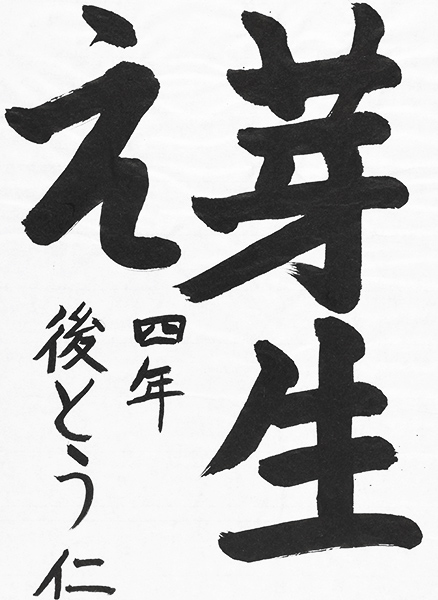 芽生
え
四年
後とう仁